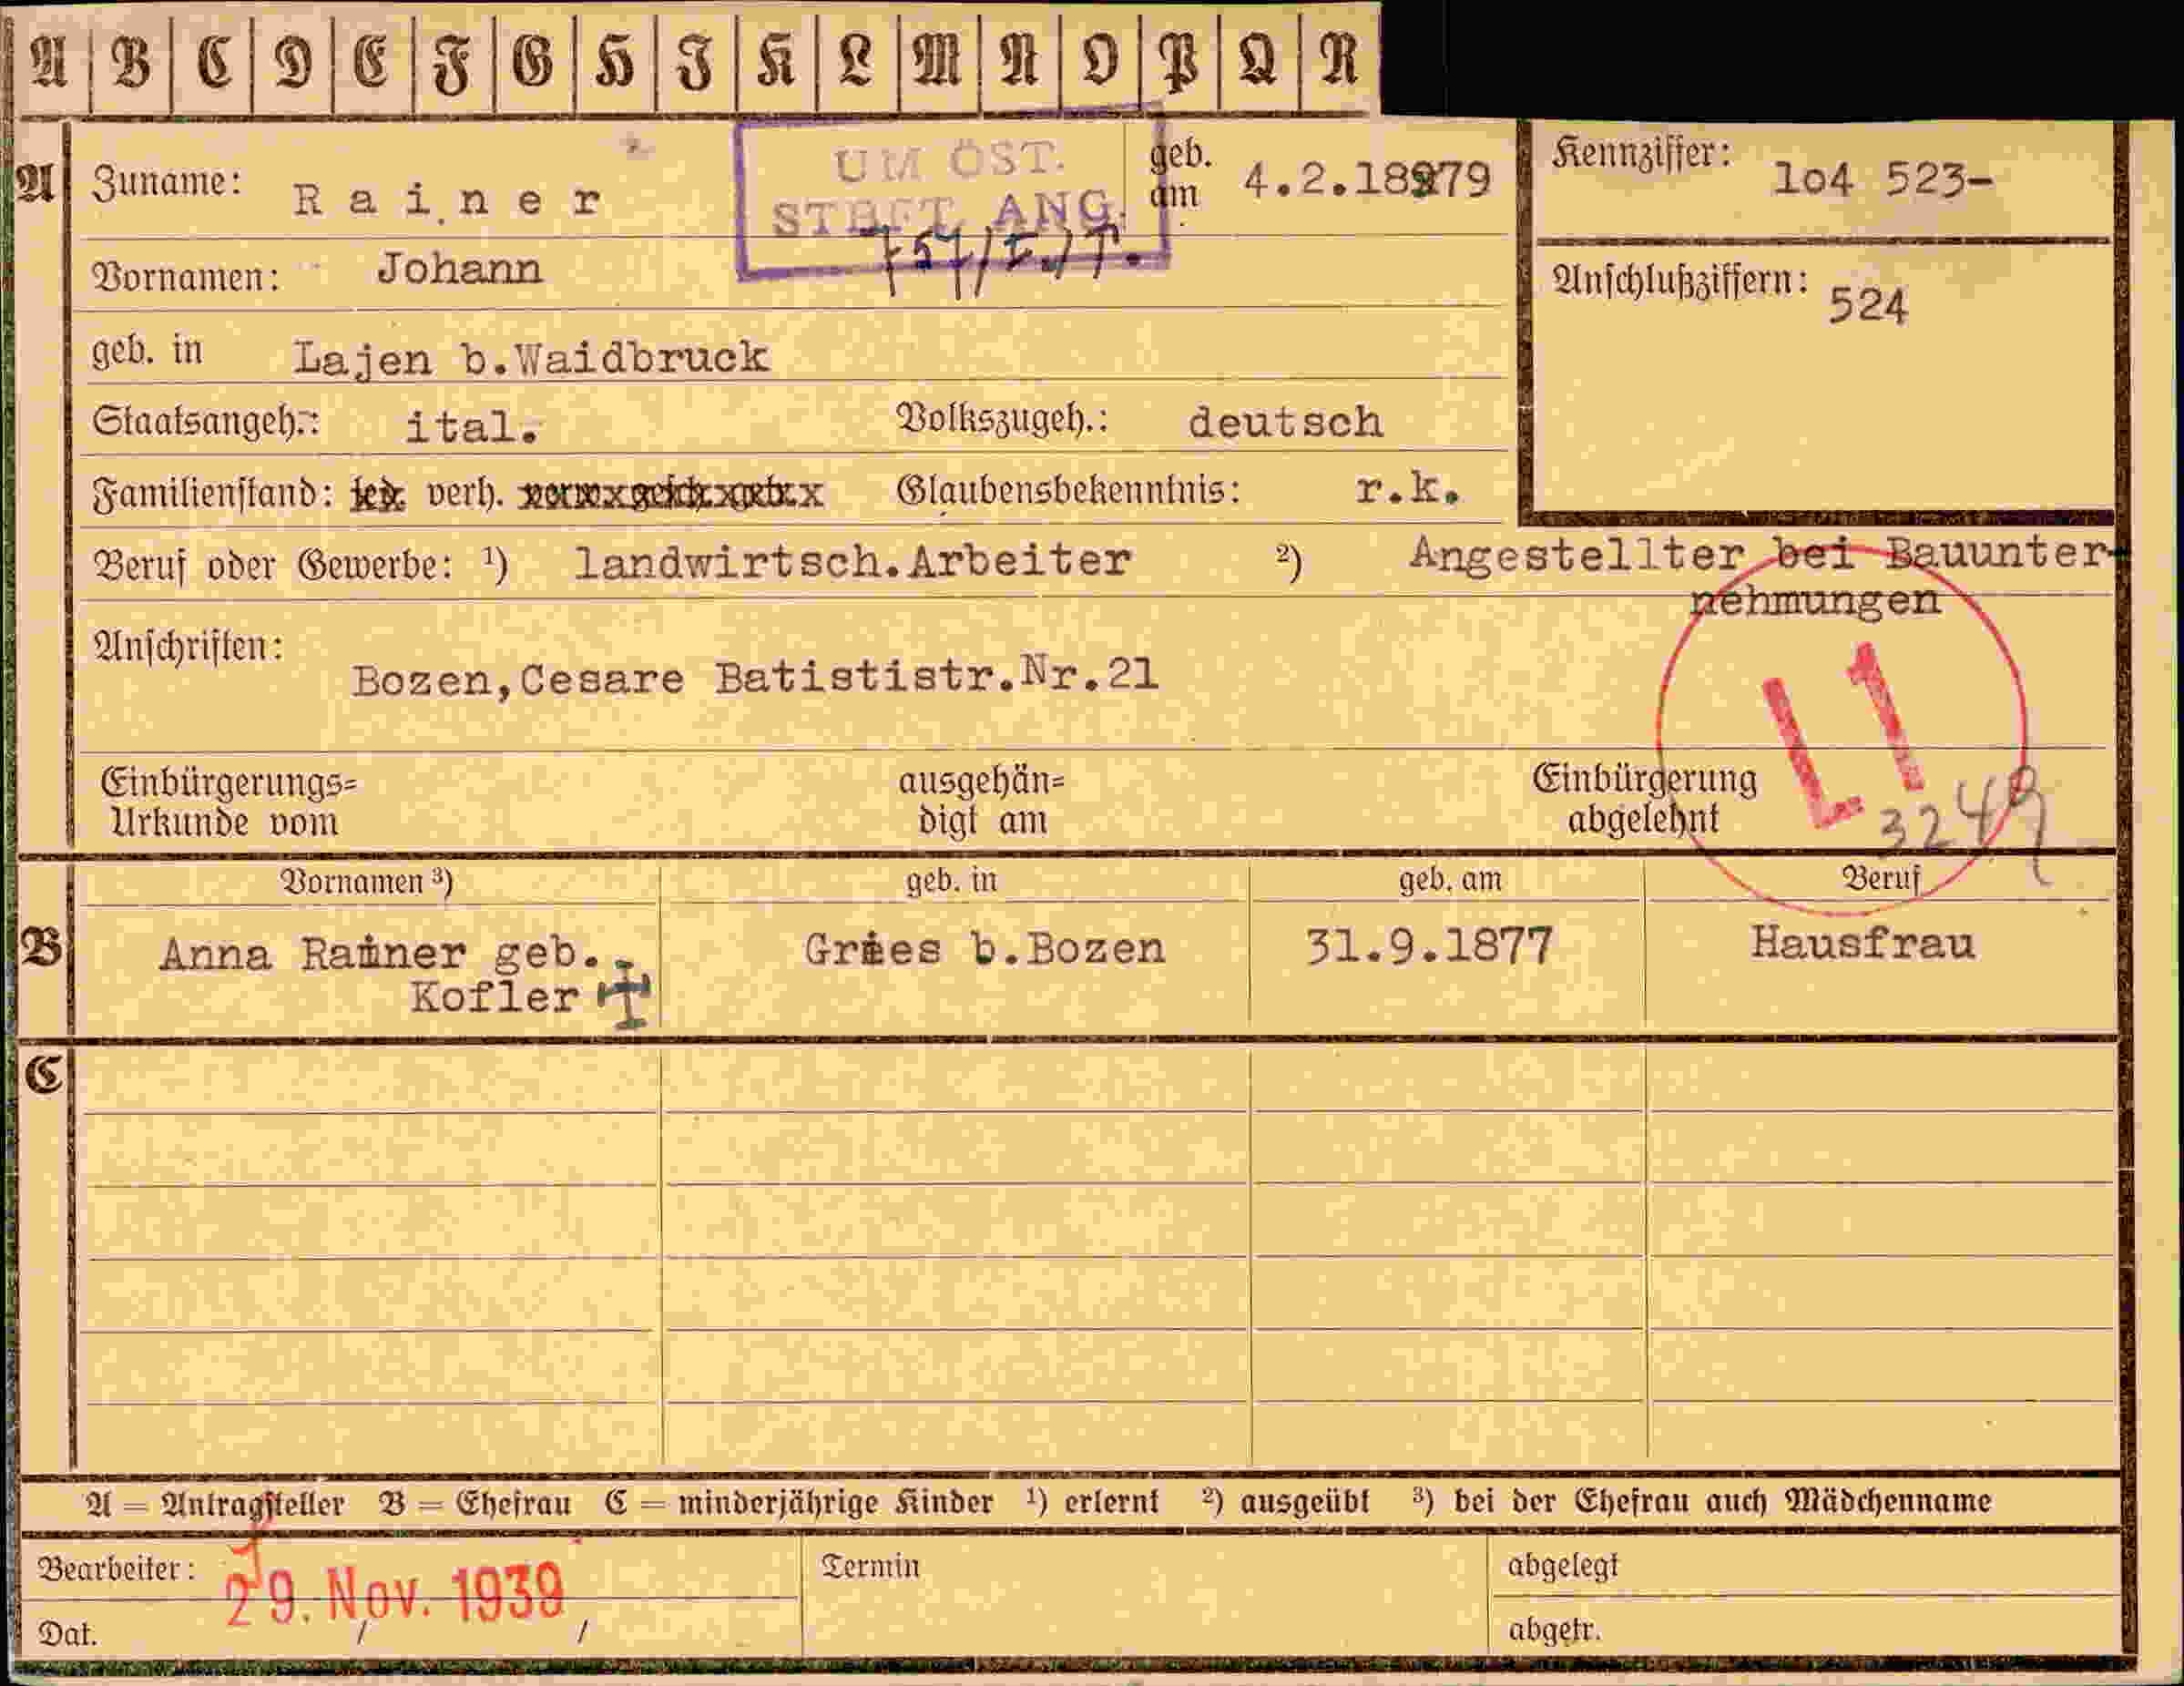 A B C D E F G H I K L M N O P Q R
A Zuname: Rainer
UM ÖST.
STBFT. ANG.
geb. am 4.2.1879
Kennziffer: 1o4 523-
Vornamen: Johann
Anschlußziffern: 524
geb. in Lajen b.Waidbruck
Staatsangeh.: ital. Volkszugeh.: deutsch
Familienstand: verh. Glaubensbekenntnis: r.k.
Beruf oder Gewerbe: 1) landwirtsch.Arbeiter 2) Angestellter bei Bauunter-
nehmungen
Anschriften:
Bozen,Cesare Batististr.Nr.21
L1
Einbürgerungs= ausgehän= Einbürgerung
Urkunde vom digt am abgelehnt
3249
Vornamen 3) geb. in geb. am Beruf
B Anna Rainer geb. Gries b.Bozen 31.9.1877 Hausfrau
Kofler
C
A = Antragsteller B = Ehefrau C = minderjährige Kinder 1) erlernt 2) ausgeübt 3) bei der Ehefrau auch Mädchenname
Bearbeiter: Termin abgelegt
29. Nov. 1939
Dat. / / abgetr.